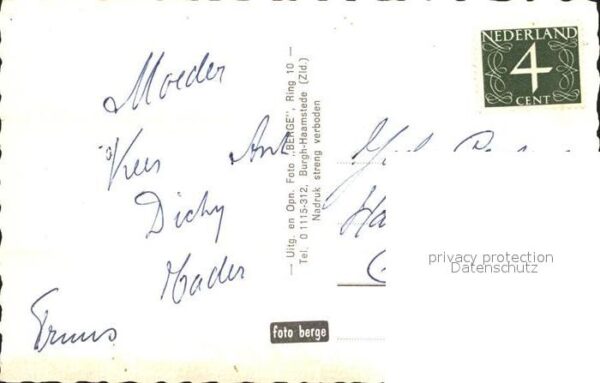 Moeder
Kees Ant
Dicky
Truus
— Uitg. en Opn. Foto „BERGE”, Ring 10 —
Tel. 0 1115-312, Burgh-Haamstede (Zld.)
Nadruk streng verboden
foto berge
NEDERLAND
4
CENT
privacy protection
Datenschutz